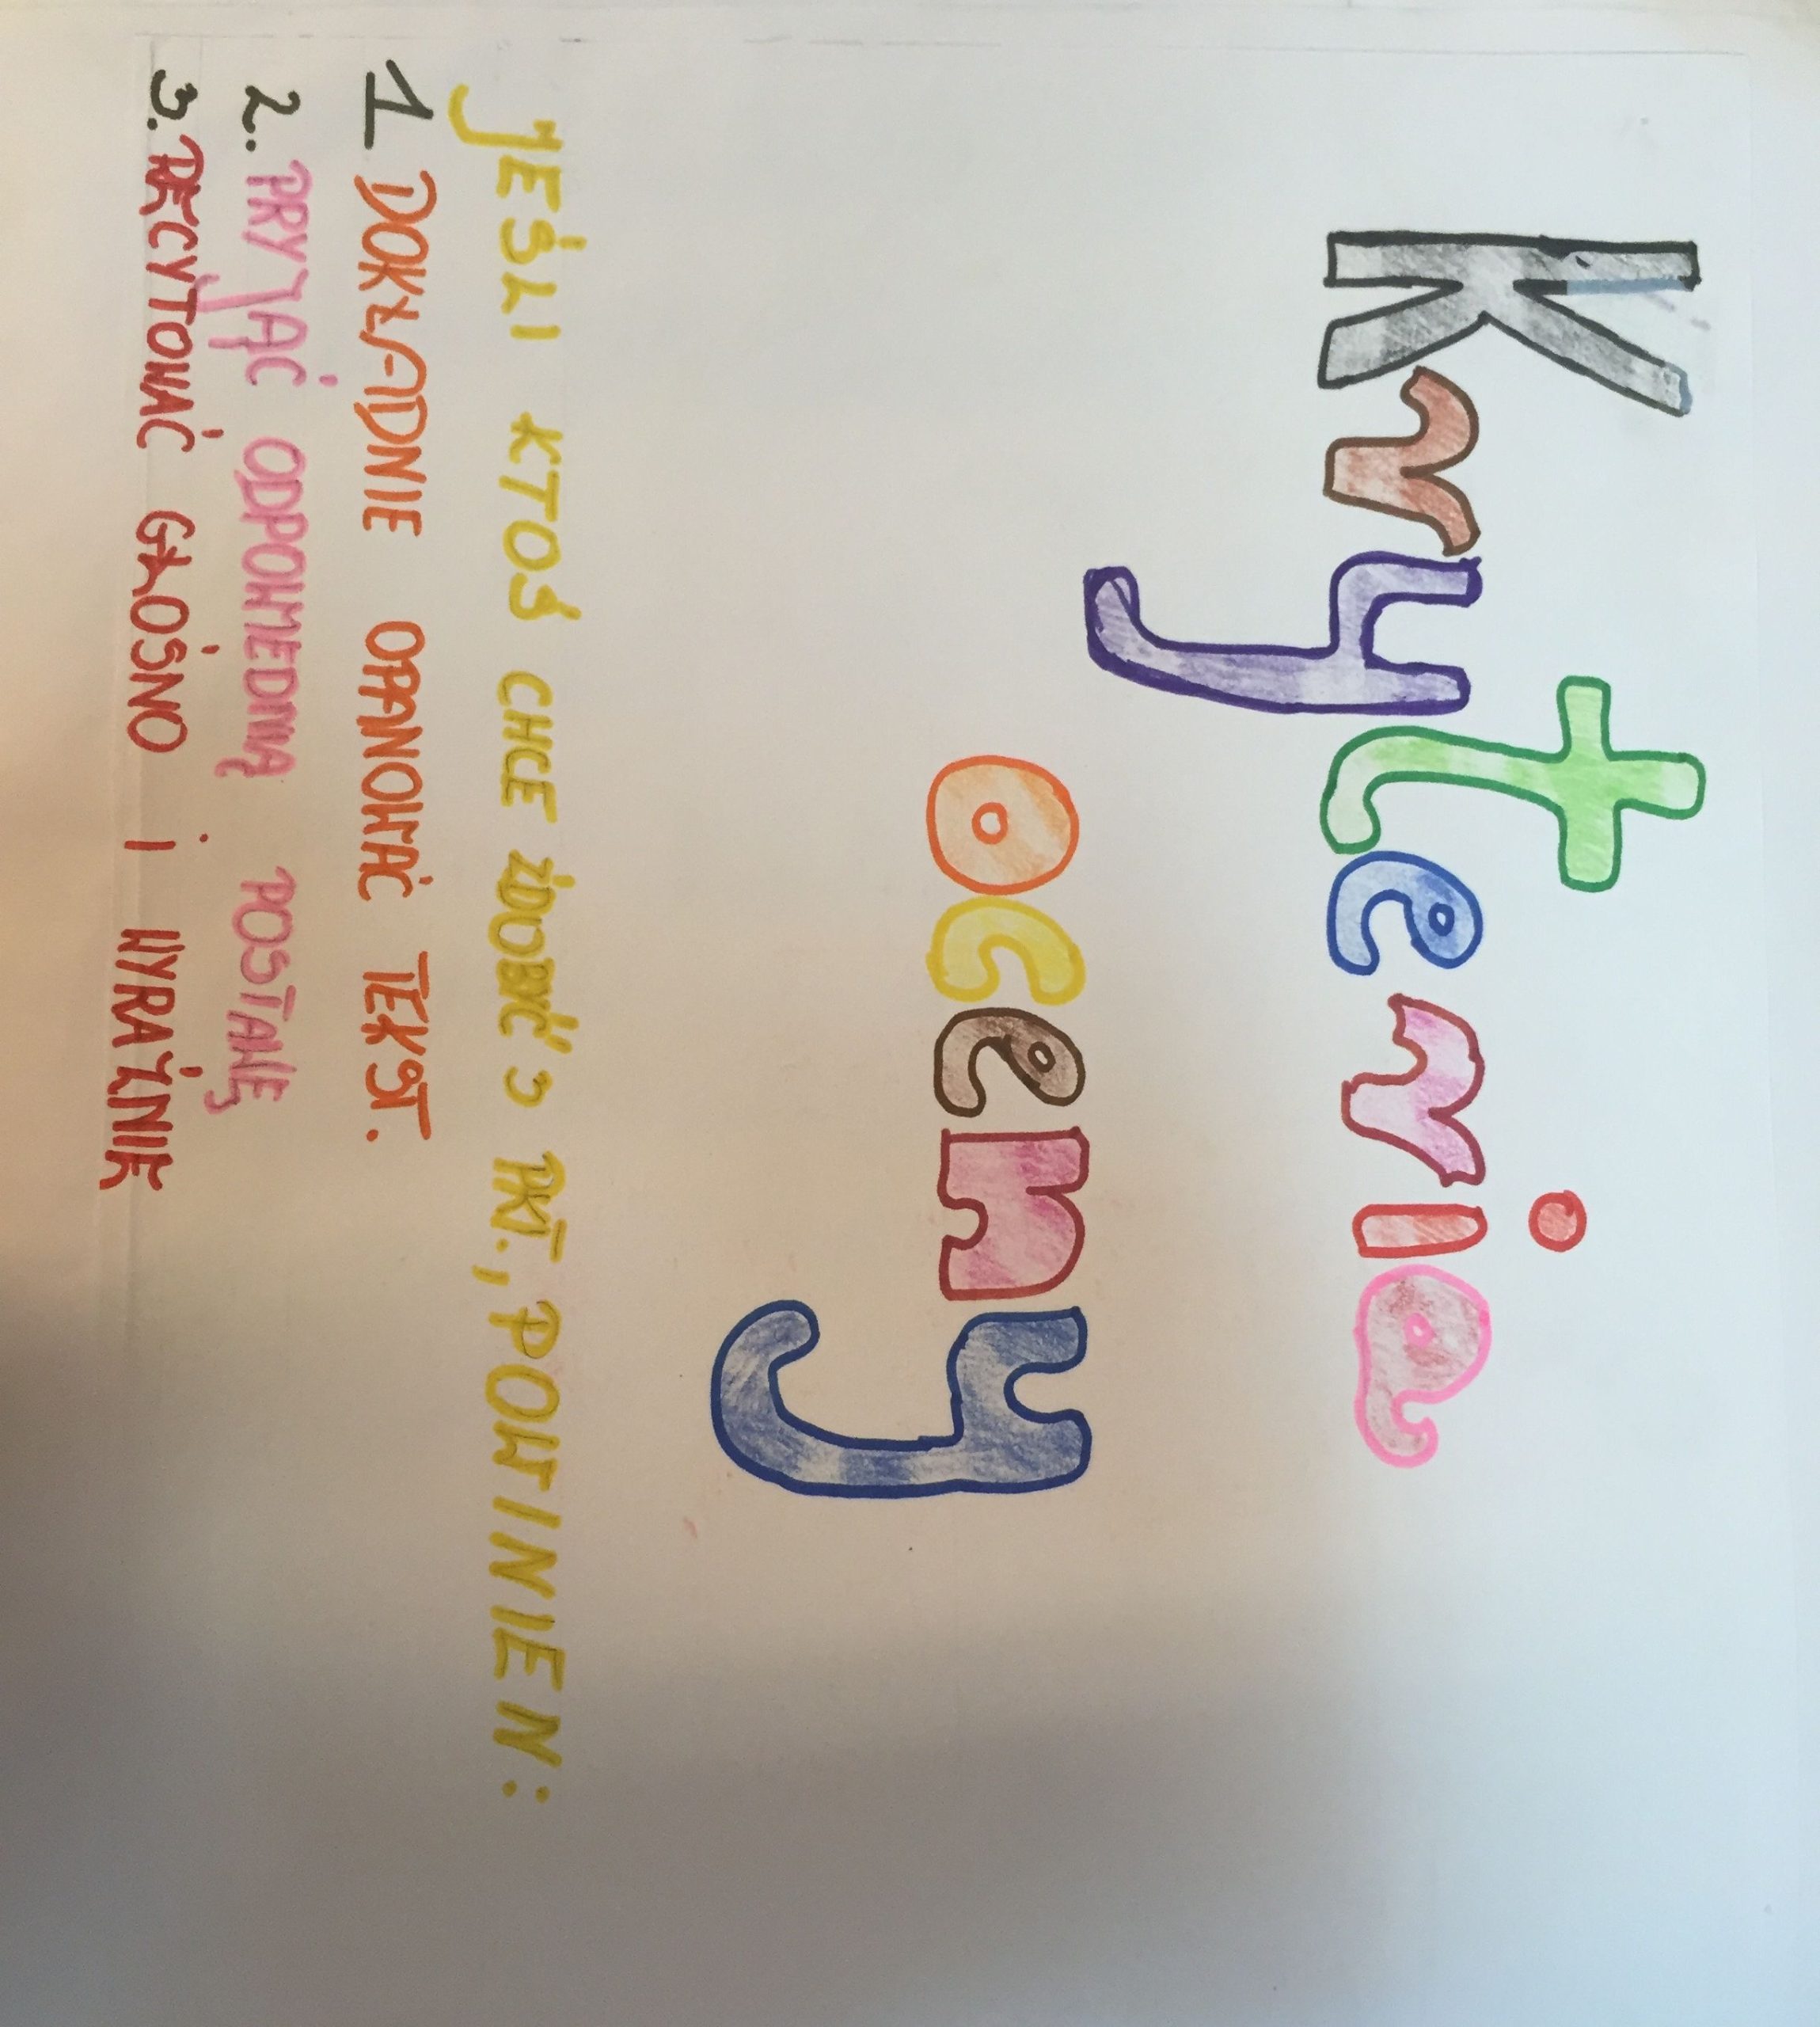 Kryteria
oceny
JEŚLI KTOŚ CHCE ZDOBYĆ 3 PKT., POWINIEN:
1 DOKŁADNIE OPANOWAĆ TEKST.
2. PRYJĄĆ ODPOWIEDNIĄ POSTAWĘ
3. RECYTOWAĆ GŁOŚNO i WYRAŹNIE